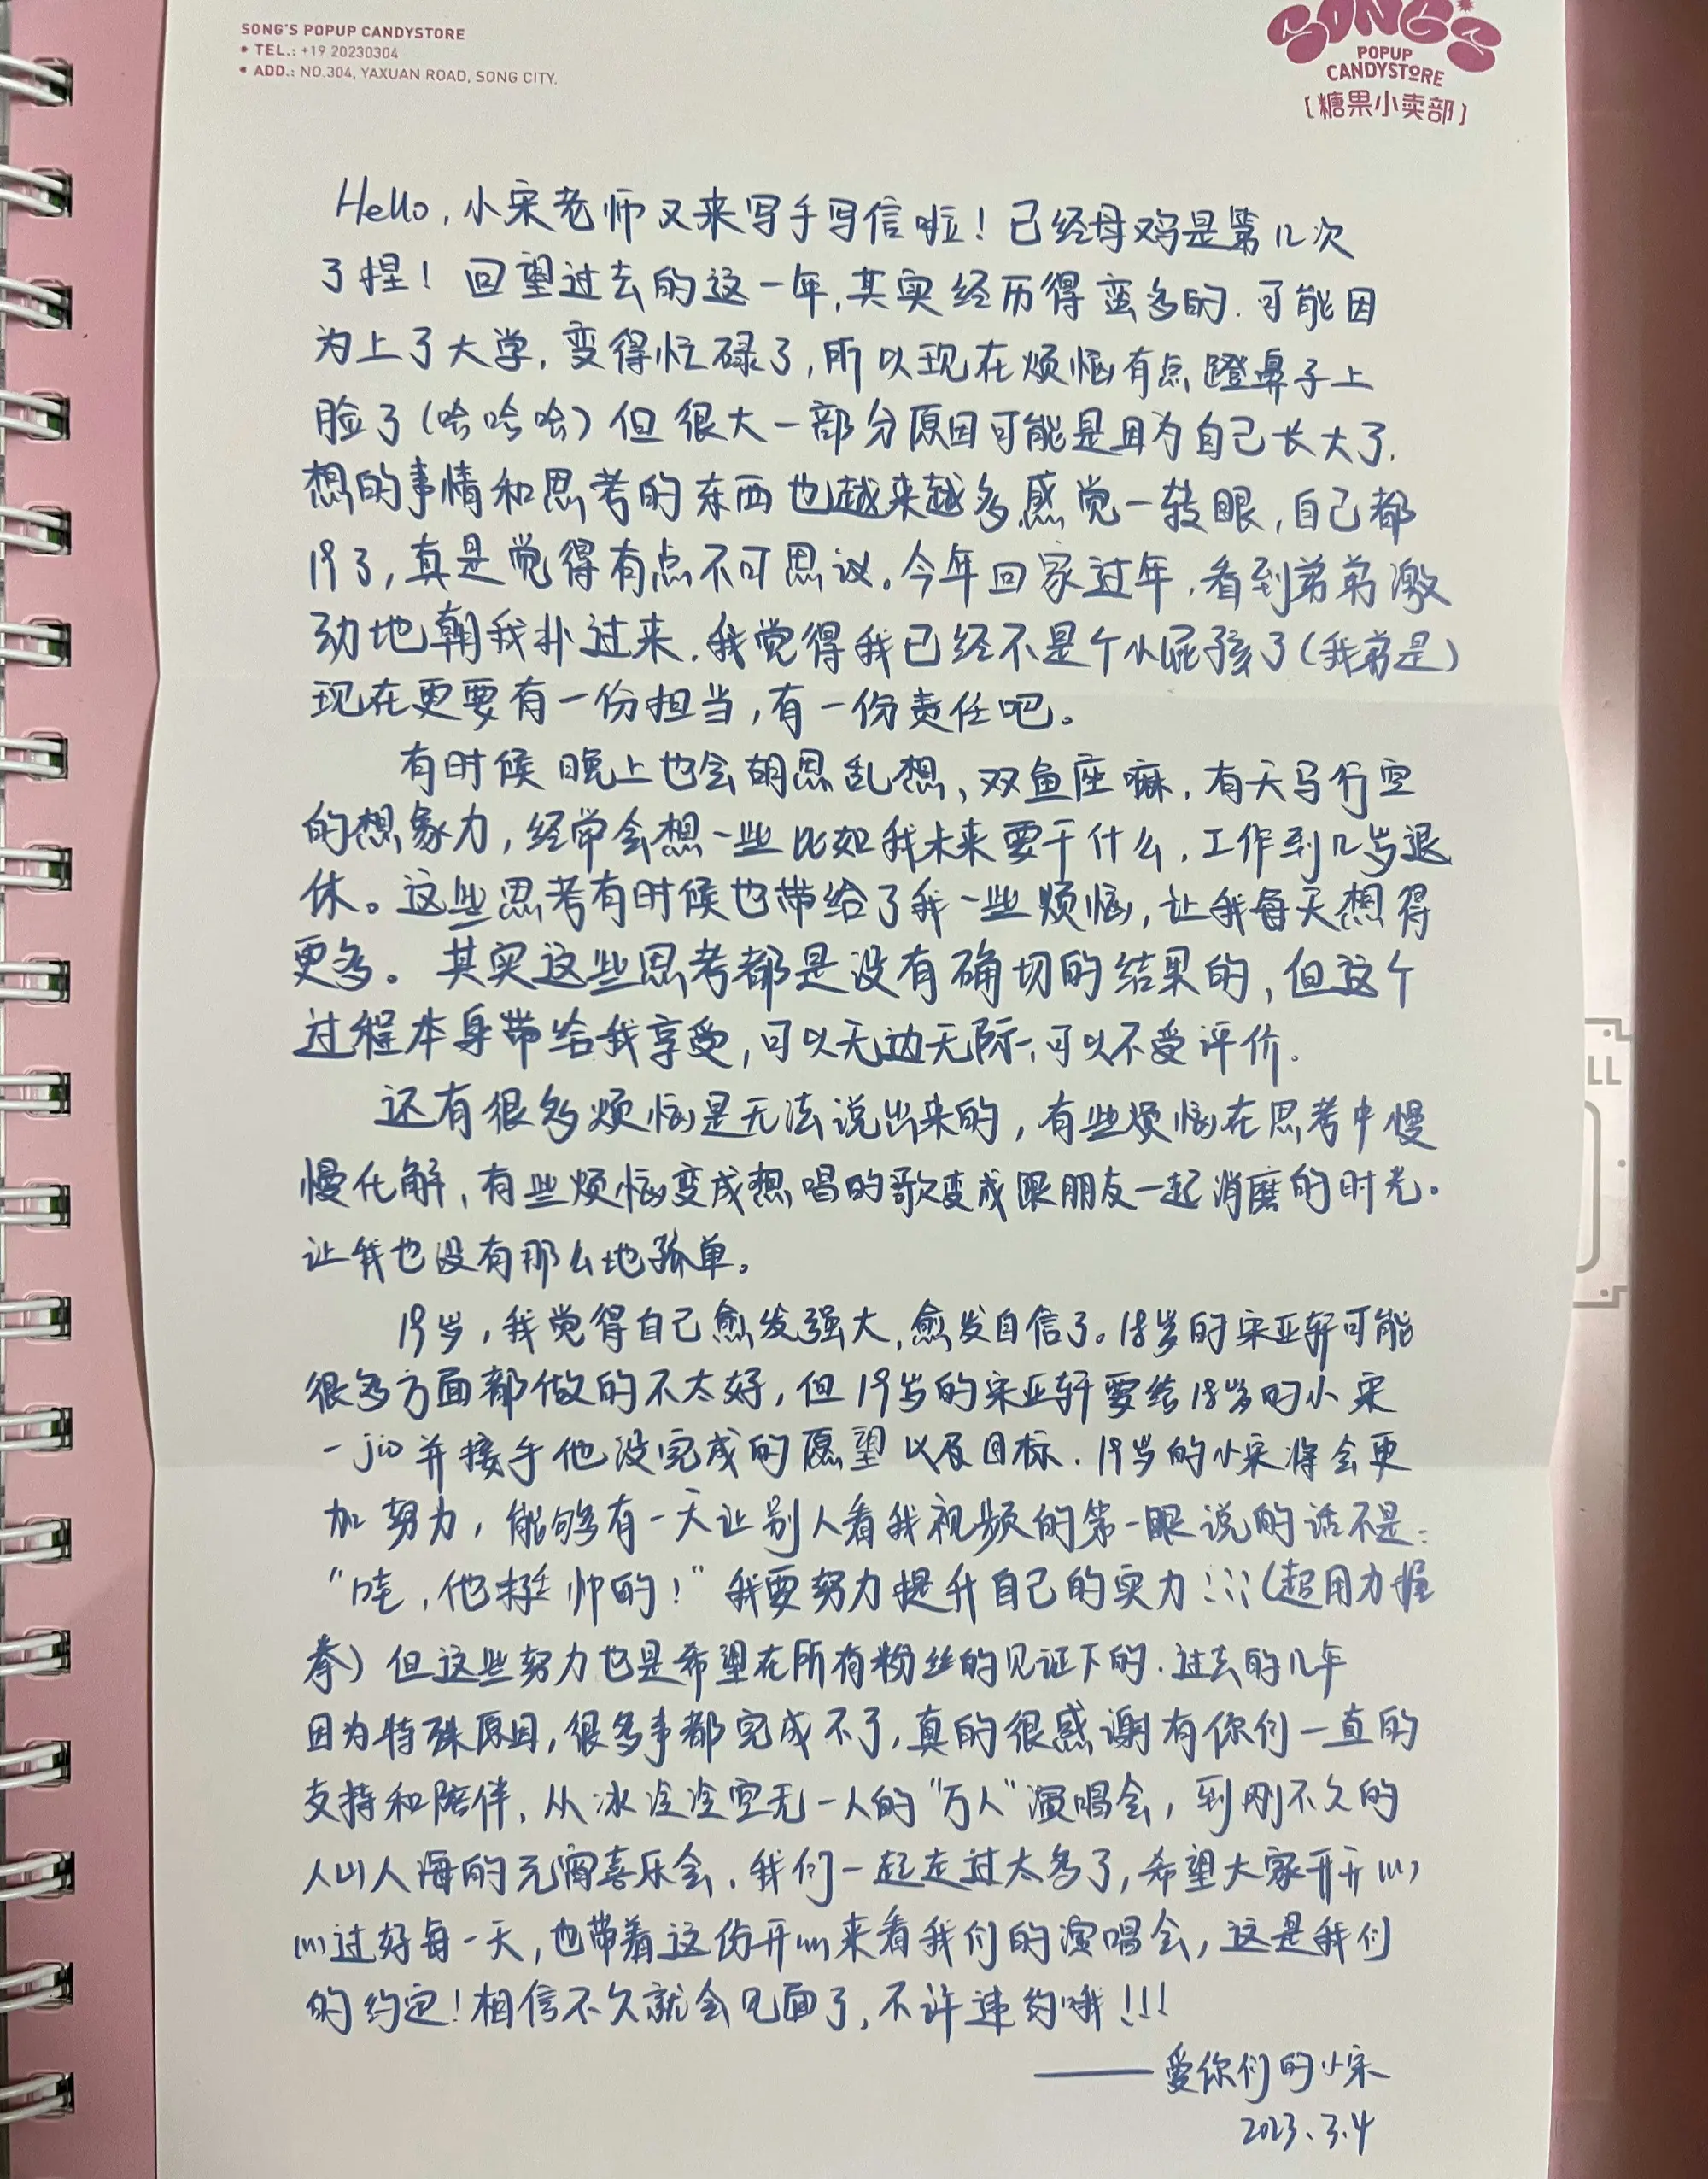 SONG'S POPUP CANDYSTORE
• TEL.: +19 20230304
• ADD.: NO.304, YAXUAN ROAD, SONG CITY.
SONG'S
POPUP
CANDYSTORE
[糖果小卖部]
Hello,小宋老师又来写手写信啦!已经母鸡是第几次
了捏!回望过去的这一年,其实经历得蛮多的.可能因
为上了大学,变得忙碌了,所以现在烦恼有点蹬鼻子上
脸了(哈哈哈)但很大一部分原因可能是因为自己长大了,
想的事情和思考的东西也越来越多,感觉一转眼,自己都
19了,真是觉得有点不可思议。今年回家过年,看到弟弟激
动地朝我扑过来,我觉得我已经不是个小屁孩了(我弟是)
现在更要有一份担当,有一份责任吧。
有时候晚上也会胡思乱想、双鱼座嘛,有天马行空
的想象力,经常会想一些比如我未来要干什么,工作到几岁退
休。这些思考有时候也带给了我一些烦恼,让我每天想得
更多。其实这些思考都是没有确切的结果的,但这个
过程本身带给我享受,可以无边无际,可以不受评价.
还有很多烦恼是无法说出来的,有些烦恼在思考中慢
慢化解,有些烦恼变成想唱的歌变成跟朋友一起消磨的时光。
让我也没有那么地孤单。
19岁,我觉得自己愈发强大,愈发自信了。18岁的宋亚轩可能
很多方面都做的不太好,但19岁的宋亚轩要给18岁的小宋
一jio并接手他没完成的愿望以及目标.19岁的小宋将会更
加努力,能够有一天让别人看我视频的第一眼说的话不是:
"哇,他挺帅的!"我要努力提升自己的实力!!!(超用力握
拳)但这些努力也是希望在所有粉丝的见证下的.过去的几年
因为特殊原因,很多事都完成不了,真的很感谢有你们一直的
支持和陪伴,从冰冷冷空无一人的"万人"演唱会,到刚不久的
人山人海的元宵喜乐会,我们一起走过太多了,希望大家开开心
心过好每一天,也带着这份开心来看我们的演唱会,这是我们
的约定!相信不久就会见面了,不许违约哦!!!
——爱你们的小宋
2023.3.4